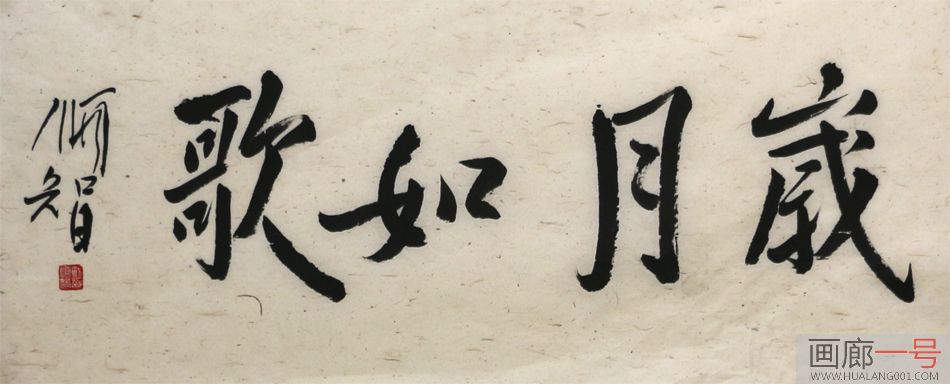 歲月如歌
画廊一号
WWW.HUALANG001.COM